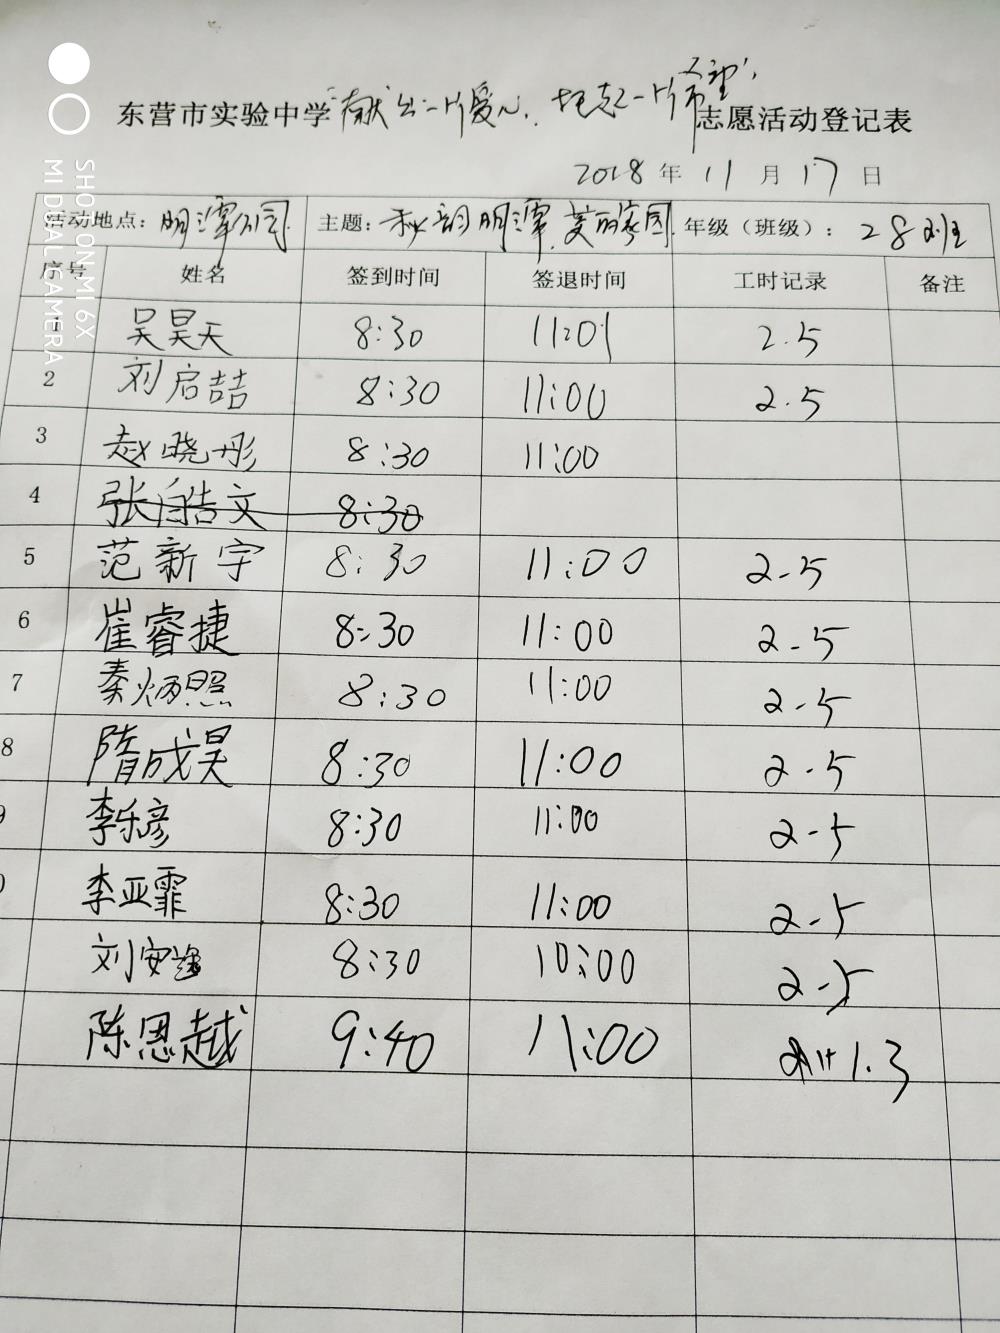 东营市实验中学“献出一片爱心,托起一片希望”志愿活动登记表
2018年11月17日
活动地点:明潭公园 主题:秋韵明潭 美丽家园 年级(班级):28班
序号 姓名 签到时间 签退时间 工时记录 备注
1 吴昊天 8:30 11:01 2.5
2 刘启喆 8:30 11:00 2.5
3 赵晓彤 8:30 11:00
4 张皓文 8:30
5 范新宇 8:30 11:00 2-5
6 崔睿捷 8:30 11:00 2-5
7 秦炳照 8:30 11:00 2-5
8 隋成昊 8:30 11:00 2-5
9 李乐彦 8:30 11:00 2-5
0 李亚霏 8:30 11:00 2-5
刘安 8:30 10:00 2-5
陈恩越 9:40 11:00 1.3
SHOT ON MI 6X
MI DUAL CAMERA